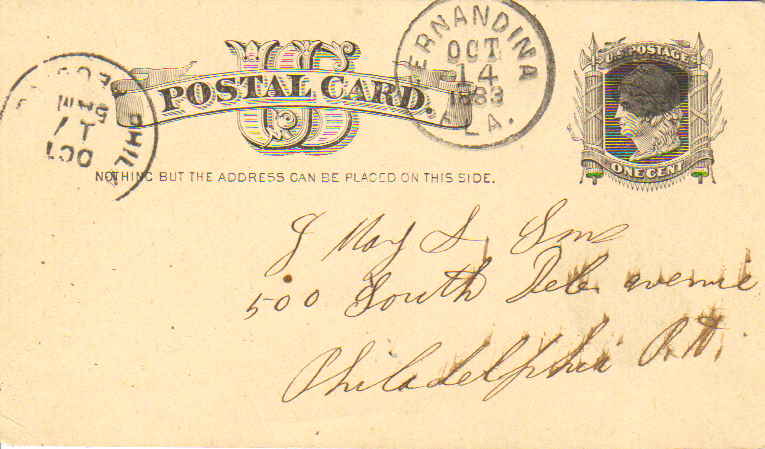 US
POSTAL CARD.
NOTHING BUT THE ADDRESS CAN BE PLACED ON THIS SIDE.
FERNANDINA
OCT
14
1883
FLA.
U.S. POSTAGE
ONE CENT
PHIL
OCT
17
5 AM
REC
J May & Sons
500 South Del. avenue
Philadelphia Pa.